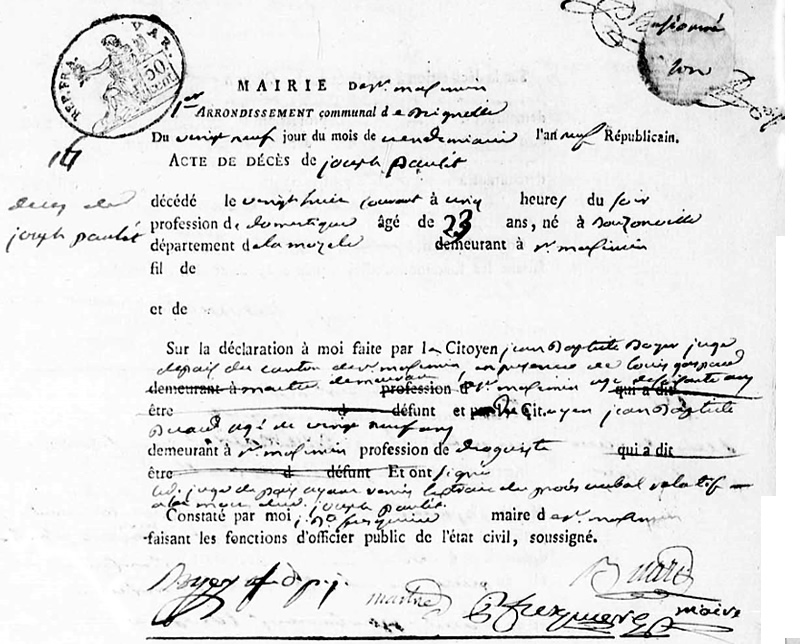 REP. FRA.
DAR.
50
MAIRIE De St maximin
1er ARRONDISSEMENT communal de Brignolle
Du vingt neuf jour du mois de vendemiaire l'an neuf Républicain.
ACTE DE DÉCÈS de joseph paulet
deces de
joseph paulet
décédé le vingt huit courant à cinq heures du soir
profession de domestique âgé de 23 ans, né à Bouzonville
département de la mozele demeurant à St maximin
fil de
et de
Sur la déclaration à moi faite par le Citoyen jean Baptiste Boyer juge
de paix du canton de St maximin, en presence de louis gaspard
demeurant à martre demeurant profession d St maximin age de soixante ans qui a dit
être d défunt et par le Citoyen jean Baptiste
age de vingt neuf ans
demeurant à St maximin profession de droguiste qui a dit
être d défunt Et ont signé
juge de paix ayant remis du procés verbal relatif
joseph paulet.
Constaté par moi maire de St maximin
faisant les fonctions d'officier public de l'état civil, soussigné.
maire